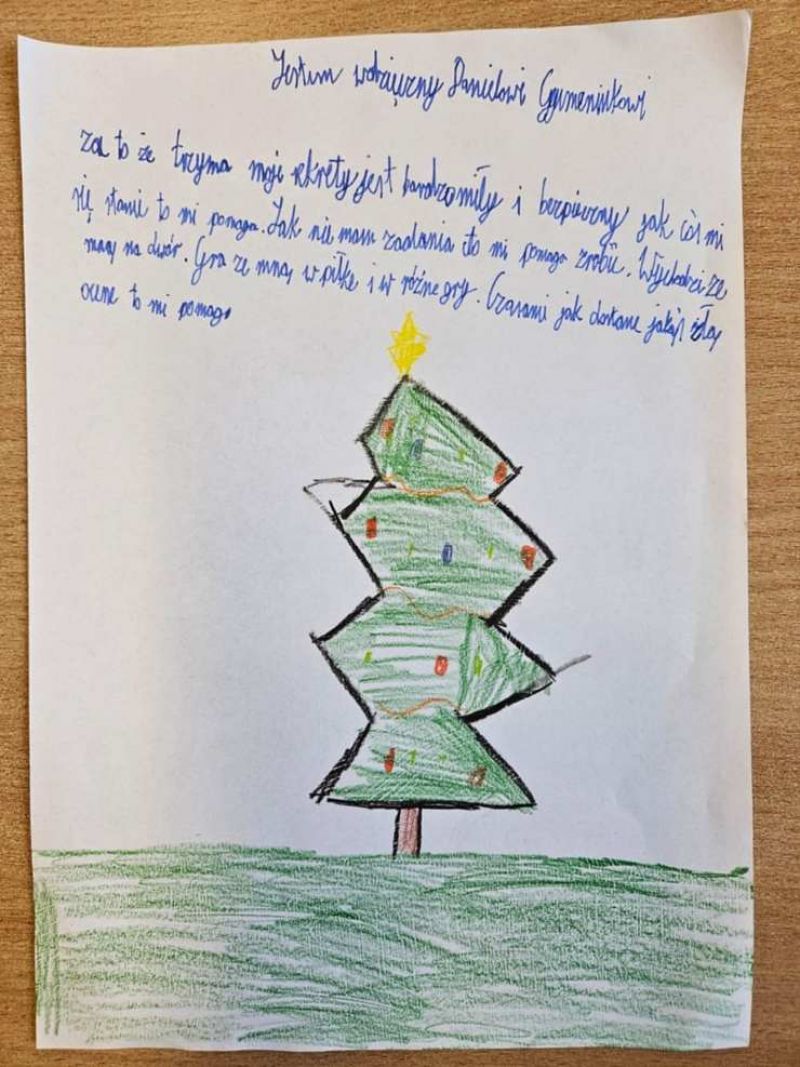 Jestem wdzięczny Danielowi Gumeniukowi
za to że trzyma moje sekrety jest bardzo miły i bezpieczny jak coś mi
się stanie to mi pomaga. Jak nie mam zadania to mi pomaga zrobić. Wychodzi ze
mną na dwór. Gra ze mną w piłkę i w różne gry. Czasami jak dostane jakąś złą
ocene to mi pomaga